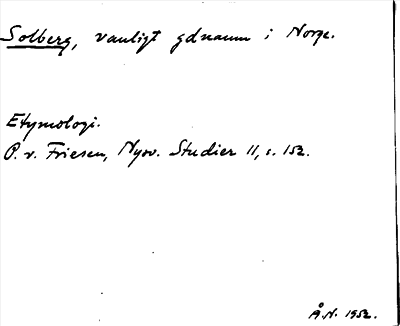 Solberg, vanligt gdnamn i Norge.
Etymologi.
P. v. Friesen, Nysv. Studier 11, s. 152.
Å.N. 1952.